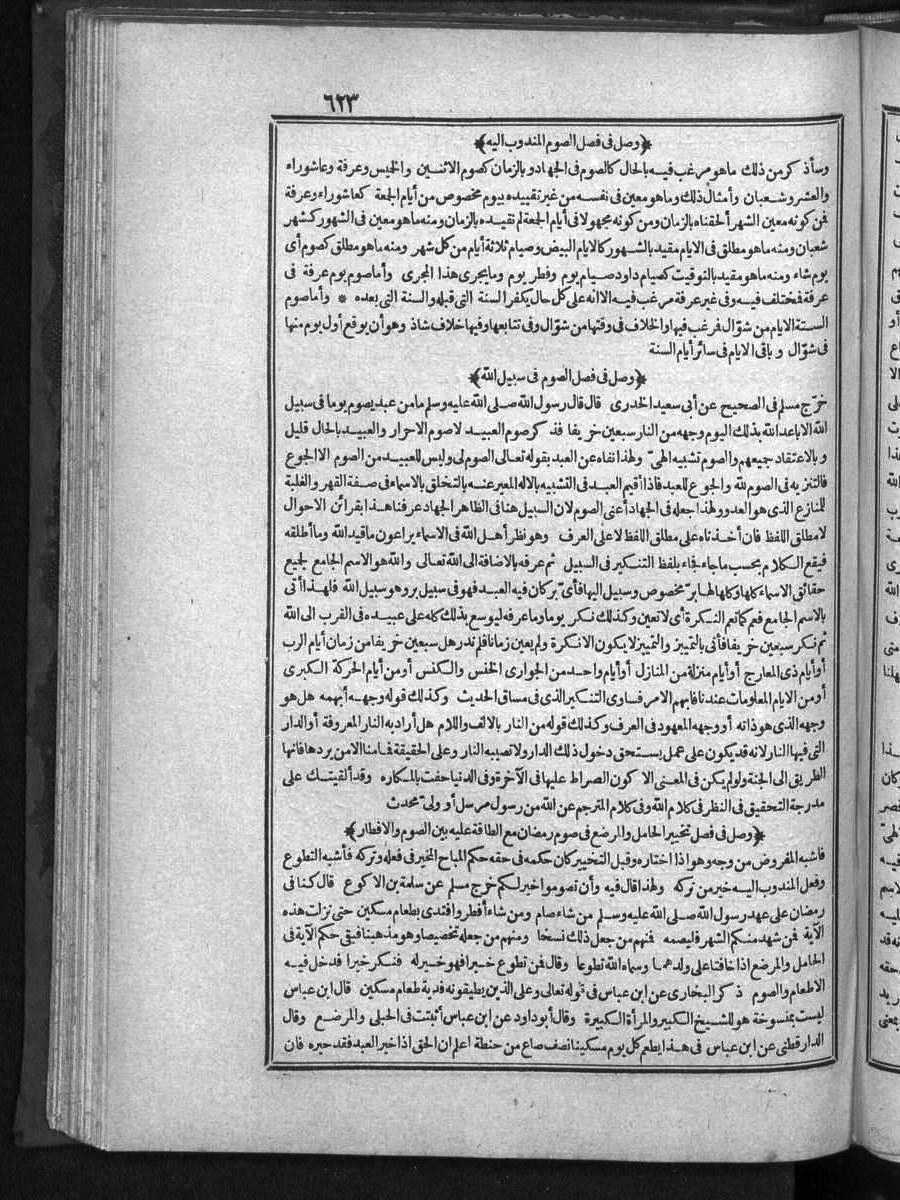 ٦٢٣
﴿وصل فى فصل الصوم المندوب اليه﴾
وسأذ كر من ذلك ما هو مرغب فيه بالحال كالصوم فى الجهاد و بالزمان كصوم الاثنين والخيس وعرفة وعاشوراء
والعشر وشعبان وأمثال ذلك وما هو معين فى نفسه من غير تقييده بيوم مخصوص من أيام الجمعة كعاشوراء وعرفة
فمن كونه معين الشهر ألحقناه بالزمان ومن كونه مجهولا فى أيام الجمعة لم نقيده بالزمان ومنه ما هو معين فى الشهور كشهر
شعبان ومنه ما هو مطلق فى الايام مقيد بالشهور كالايام البيض وصيام ثلاثة أيام من كل شهر ومنه ما هو مطلق كصوم أى
يوم شاء ومنه ما هو مقيد بالتوقيت كصيام داود صيام يوم وفطر يوم وما يجرى هذا المجرى وأما صوم يوم عرفة فى
عرفة فمختلف فيه وفى غير عرفة مرغب فيه الاانه على كل حال يكفر السنة التى قبله والسنة التى بعده * وأما صوم
الستة الايام من شوّال فرغب فيها والخلاف فى وقتها من شوّال وفى تتابعها وفيها خلاف شاذ وهو أن يوقع أول يوم منها
فى شوّال و باقى الايام فى سائر أيام السنة
﴿وصل فى فصل الصوم فى سبيل الله﴾
خرّج مسلم فى الصحيح عن أبى سعيد الخدرى قال قال رسول الله صلى الله عليه وسلم ما من عبد يصوم يوما فى سبيل
الله الا باعد الله بذلك اليوم وجهه من النار سبعين خر يفا فذ كر صوم العبيد لا صوم الاحرار والعبيد بالحال قليل
و بالاعتقاد جميعهم والصوم تشبيه الهىّ ولهذا نفاه عن العبد بقوله تعالى الصوم لى وليس للعبيد من الصوم الا الجوع
فالتنزيه فى الصوم لله والجوع للعبد فاذا أقيم العبد فى التشبيه بالاله المعبر عنه بالتخلق بالاسماء فى صفة القهر والغلبة
للمنازع الذى هو العدو ولهذا جعله فى الجهاد أعنى الصوم لان السبيل هنا فى الظاهر الجهاد عرفنا هذا بقرائن الاحوال
لا مطلق اللفظ فان أخذناه على مطلق اللفظ لا على العرف وهو نظر أهل الله فى الاسماء يراعون ما قيد الله وما أطلقه
فيقع الكلام بحسب ما جاء فجاء بلفظ التنكير فى السبيل ثم عرفه بالاضافة الى الله تعالى والله هو الاسم الجامع لجميع
حقائق الاسماء كلها وكلها لها برّ مخصوص وسبيل اليها فأىّ بر كان فيه العبد فهو فى سبيل بر وهو سبيل الله فلهذا أتى
بالاسم الجامع فعم كما تعم النكرة أى لا تعين وكذلك نكر يوما وما عرفه ليوسع بذلك كله على عبيده فى القرب الى الله
ثم نكر سبعين خر يفا فأتى بالتمييز والتمييز لا يكون الا نكرة ولم يعين زمانا فلم ندر هل سبعين خر يفا من زمان أيام الرب
أو أيام ذى المعارج أو أيام منزلة من المنازل أو أيام واحد من الجوارى الخنس والكنس أو من أيام الحركة الكبرى
أو من الايام المعلومات عندنا فابهم الامر فساوى التنكير الذى فى مساق الحديث وكذلك قوله وجهه أبهمه هل هو
وجهه الذى هو ذاته أو وجهه المعهود فى العرف وكذلك قوله من النار بالالف واللام هل أراد به النار المعروفة أو الدار
التى فيها النار لانه قد يكون على عمل يستحق دخول ذلك الدار ولا تصيبه النار وعلى الحقيقة فما منا الا من يردها فانها
الطريق الى الجنة ولو لم يكن فى المعنى الا كون الصراط عليها فى الآخرة وفى الدنيا حفت بالمكاره وقد ألقيتك على
مدرجة التحقيق فى النظر فى كلام الله وفى كلام المترجم عن الله من رسول مرسل أو ولىّ محدث
﴿وصل فى فصل تخيير الحامل والمرضع فى صوم رمضان مع الطاقة عليه بين الصوم والافطار﴾
فاشبه المفروض من وجه وهو اذا اختاره وقبل التخيير كان حكمه فى حقه حكم المباح المخير فى فعله وتركه فأشبه التطوع
وفعل المندوب اليه خير من تركه ولهذا قال فيه وأن تصوموا خير لكم خرج مسلم عن سلمة بن الاكوع قال كنا فى
رمضان على عهد رسول الله صلى الله عليه وسلم من شاء صام ومن شاء أفطر وافتدى بطعام مسكين حتى نزلت هذه
الآية فمن شهد منكم الشهر فليصمه فنهم من جعل ذلك نسخا ومنهم من جعله تخصيصا وهو مذهبنا فبقى حكم الآية فى
الحامل والمرضع اذا خافتا على ولدهما وسماه الله تطوعا وقال فمن تطوع خيرا فهو خير له فنكر خيرا فدخل فيه
الاطعام والصوم ذ كر البخارى عن ابن عباس فى قوله تعالى وعلى الذين يطيقونه فدية طعام مسكين قال ابن عباس
ليست بمنسوخة هو للشيخ الكبير والمرأة الكبيرة وقال أبو داود عن ابن عباس أثبتت فى الحبلى والمرضع وقال
الدارقطنى عن ابن عباس فى هذا يطعم كل يوم مسكينا نصف صاع من حنطة اعلم ان الحق اذا خير العبد فقد حيره فان